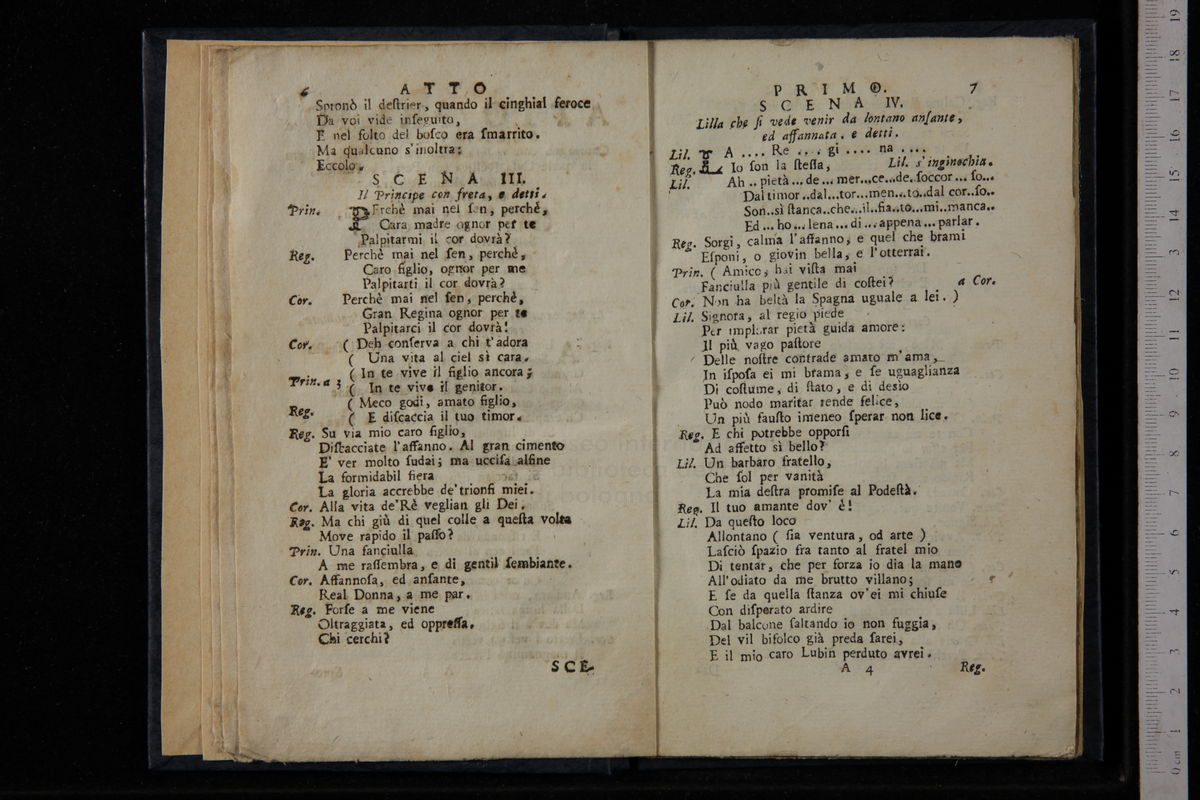 6 ATTO
Spronò il deſtrier, quando il cinghial feroce
Da voi vide inſeguito,
E nel folto del boſco era ſmarrito.
Ma qualcuno s'inoltra:
Eccolo.
SCENA III.
Il Principe con freta, e detti.
Prin. PErchè mai nel ſen, perchè,
Cara madre ognor per te
Palpitarmi il cor dovrà?
Reg. Perchè mai nel ſen, perchè,
Caro figlio, ognor per me
Palpitarti il cor dovrà?
Cor. Perchè mai nel ſen, perchè,
Gran Regina ognor per te
Palpitarci il cor dovrà!
Cor. ( Deh conſerva a chi t'adora
( Una vita al ciel sì cara.
( In te vive il figlio ancora;
Prin. a 3 ( In te vive il genitor.
( Meco godi, amato figlio,
Reg. ( E diſcaccia il tuo timor.
Reg. Su via mio caro figlio,
Diſcacciate l'affanno. Al gran cimento
E' ver molto ſudai; ma ucciſa alfine
La formidabil fiera
La gloria accrebbe de'trionfi miei.
Cor. Alla vita de'Rè veglian gli Dei.
Reg. Ma chi giù di quel colle a queſta volta
Move rapido il paſſo?
Prin. Una fanciulla
A me raſſembra, e di gentil ſembiante.
Cor. Affannoſa, ed anſante,
Real Donna, a me par.
Reg. Forſe a me viene
Oltraggiata, ed oppreſſa.
Chi cerchi?
SCE-
PRIMO. 7
SCENA IV.
Lilla che ſi vede venir da lontano anſante,
ed affannata. e detti.
Lil. LA .... Re .... gi .... na ....
Reg. Io ſon la ſteſſa, Lil. s'inginochia.
Lil. Ah .. pietà... de... mer...ce...de. ſoccor... ſo...
Dal timor ..dal...tor...men...to..dal cor..ſo..
Son..sì ſtanca..che...il..fia..to...mi..manca..
Ed... ho... lena... di ... appena... parlar.
Reg. Sorgi, calma l'affanno, e quel che brami
Eſponi, o giovin bella, e l'otterrai.
Prin. ( Amico, hai viſta mai
Fanciulla più gentile di coſtei? a Cor.
Cor. Non ha beltà la Spagna uguale a lei. )
Lil. Signora, al regio piede
Per implorar pietà guida amore:
Il più vago paſtore
Delle noſtre contrade amato m'ama,
In iſpoſa ei mi brama, e ſe uguaglianza
Di coſtume, di ſtato, e di desio
Può nodo maritar rende felice,
Un più fauſto imeneo ſperar non lice.
Reg. E chi potrebbe opporſi
Ad affetto sì bello?
Lil. Un barbaro fratello,
Che ſol per vanità
La mia deſtra promiſe al Podeſtà.
Reg. Il tuo amante dov' è!
Lil. Da queſto loco
Allontano ( ſia ventura, od arte )
Laſciò ſpazio fra tanto al fratel mio
Di tentar, che per forza io dia la mano
All'odiato da me brutto villano;
E ſe da quella ſtanza ov'ei mi chiuſe
Con diſperato ardire
Dal balcone ſaltando io non fuggia,
Del vil bifolco già preda ſarei,
E il mio caro Lubin perduto avrei.
A 4 Reg.